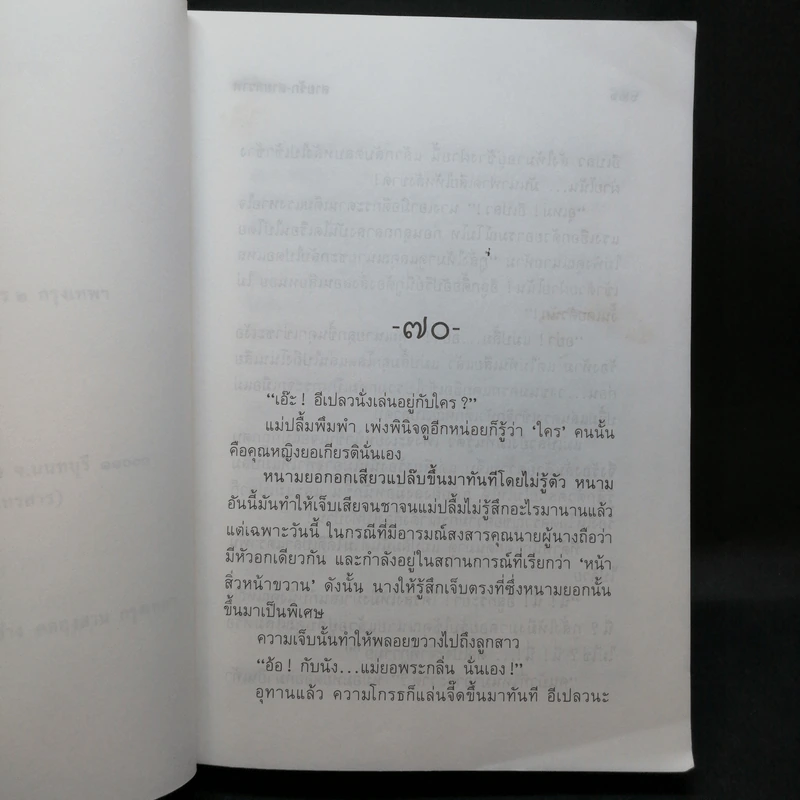 -๗๐-
“เอ๊ะ! อีเปลวนั่งเล่นอยู่กับใคร?”
แม่ปลื้มพึมพำ เพ่งพินิจดูอีกหน่อยก็รู้ว่า ‘ใคร’ คนนั้น
คือคุณหญิงยอเกียรตินั่นเอง
หนามยอกอกเสียวแปล๊บขึ้นมาทันทีโดยไม่รู้ตัว หนาม
อันนี้มันทำให้เจ็บเสียจนชาจนแม่ปลื้มไม่รู้สึกอะไรมานานแล้ว
แต่เฉพาะวันนี้ ในกรณีที่มีอารมณ์สงสารคุณนายผู้นางถือว่า
มีหัวอกเดียวกัน และกำลังอยู่ในสถานการณ์ที่เรียกว่า ‘หน้า
สิ่วหน้าขวาน’ ดังนั้น นางให้รู้สึกเจ็บตรงที่ซึ่งหนามยอกนั้น
ขึ้นมาเป็นพิเศษ
ความเจ็บนั้นทำให้พลอยขวางไปถึงลูกสาว
“อ้อ! กับนัง...แม่ยอพระกลิ่น นั่นเอง!”
อุทานแล้ว ความโกรธก็แล่นจี๊ดขึ้นมาทันที อีเปลวนะ